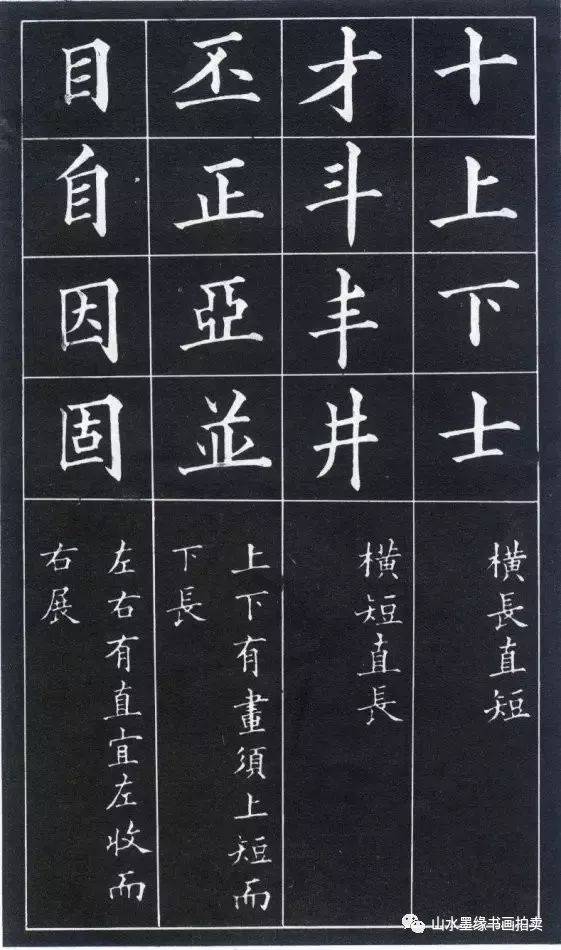 十上下士
横長直短
才斗丰井
横短直長
丕正亞並
上下有畫須上短而
下長
目自因固
左右有直宜左收而
右展
山水墨缘书画拍卖